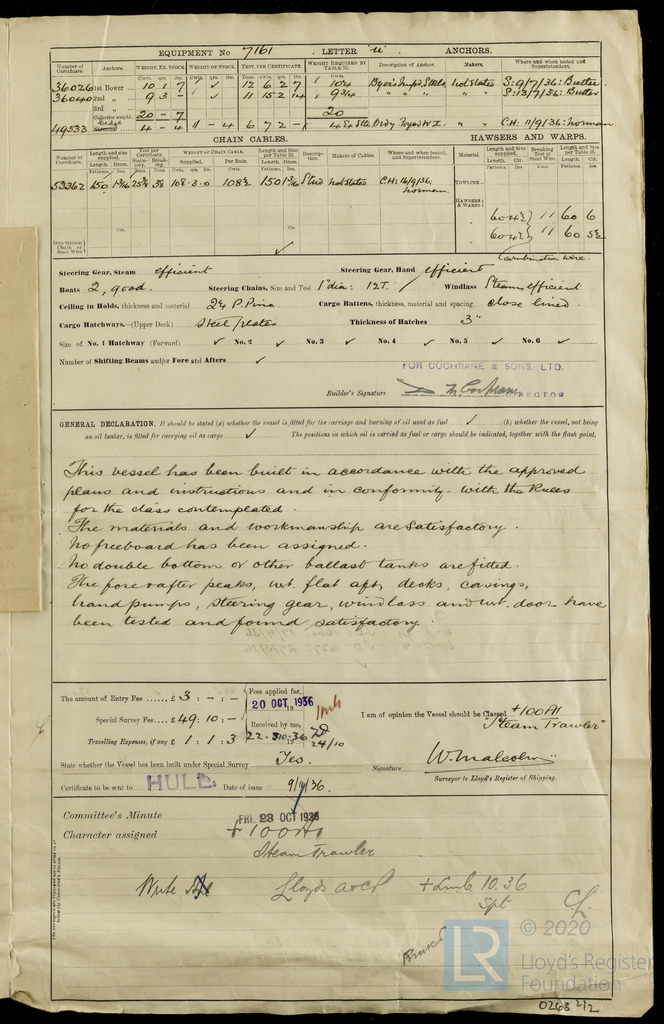 EQUIPMENT No 7161 LETTER "u" ANCHORS.
Number of Certificate. Anchors. WEIGHT, EX. STOCK. WEIGHT OF STOCK. TEST, PER CERTIFICATE. WEIGHT REQUIRED BY TABLE 53. Description of Anchor. Makers. Where and when tested and Superintendent.
Cwts. qrs. lbs. Cwts. qrs. lbs. Tons. cwts. qrs. lbs. Cwts.
36026 1st Bower 10 1 7 12 6 2 7 10¼ Not States S: 9/7/36: Butter
36040 2nd „ 9 3 - 11 15 2 14 9¾ „ „ „ „ „ S: 13/7/36: Butter
3rd „
Collective weight 20 - 7 20
49533 4 - 4 - 4 6 7 2 - C.H: 11/9/36: Norman
CHAIN CABLES. HAWSERS AND WARPS.
Number of Certificate. Length and size supplied. Test per Certificate. WEIGHT OF CHAIN CABLE. Length and Size per Table 53. Description. Makers of Cables. Where and when tested, and Superintendent. Material Length and Size supplied. Breaking Test of Steel Wire. Length and Size per Table 53.
Supplied. Per Rule.
53362 150 1 3/16 108-3-0 108½ 150 1 3/16 Stud Not States C.H: 16/9/36: Norman
TOWLINE
HAWSERS & WARPS
60 4½ 11 60 6
60 4½ 11 60 5½
Combination wire.
Steering Gear, Steam efficient Steering Gear, Hand efficient
Boats 2, good. Steering Chains, Size and Test 1" dia: 12T. Windlass Steam, efficient
Ceiling in Holds, thickness and material 2¼ P. Pine. Cargo Battens, thickness, material and spacing close lined.
Cargo Hatchways.—(Upper Deck) Steel Plates Thickness of Hatches 3"
Size of No. 1 Hatchway (Forward) ✓ No. 2 ✓ No. 3 ✓ No. 4 ✓ No. 5 ✓ No. 6 ✓
Number of Shifting Beams and/or Fore and Afters ✓
FOR COCHRANE & SONS, LTD.
Builder's Signature Cochrane DIRECTOR
GENERAL DECLARATION. It should be stated (a) whether the vessel is fitted for the carriage and burning of oil used as fuel ✓ (b) whether the vessel, not being
an oil tanker, is fitted for carrying oil as cargo ✓ The positions in which oil is carried as fuel or cargo should be indicated, together with the flash point.
This vessel has been built in accordance with the approved
plans and instructions and in conformity with the Rules
for the class contemplated.
The materials and workmanship are satisfactory.
No freeboard has been assigned.
No double bottom or other ballast tanks are fitted.
The fore & after peaks, wt. flat aft, decks, casings,
hand pumps, steering gear, windlass and wt. door have
been tested and found satisfactory.
The amount of Entry Fee ...... £ 3 : - : - Fees applied for,
20 OCT 1936
Special Survey Fee.... £ 49 : 10 : - Received by me,
Travelling Expenses, if any £ 1 : 1 : 3 22.10.36 24/10
I am of opinion the Vessel should be Classed +100A1
"Steam Trawler"
State whether the Vessel has been built under Special Survey Yes.
Signature W. Malcolm
Surveyor to Lloyd's Register of Shipping.
Certificate to be sent to HULL Date of issue 9/11/36.
Committee's Minute FRI. 23 OCT 1936
Character assigned +100A1
Steam Trawler
Write Lloyds a & c p + Lmb 10.36
Spt
LR © 2020
Lloyd's Register
Foundation
0263 2/2